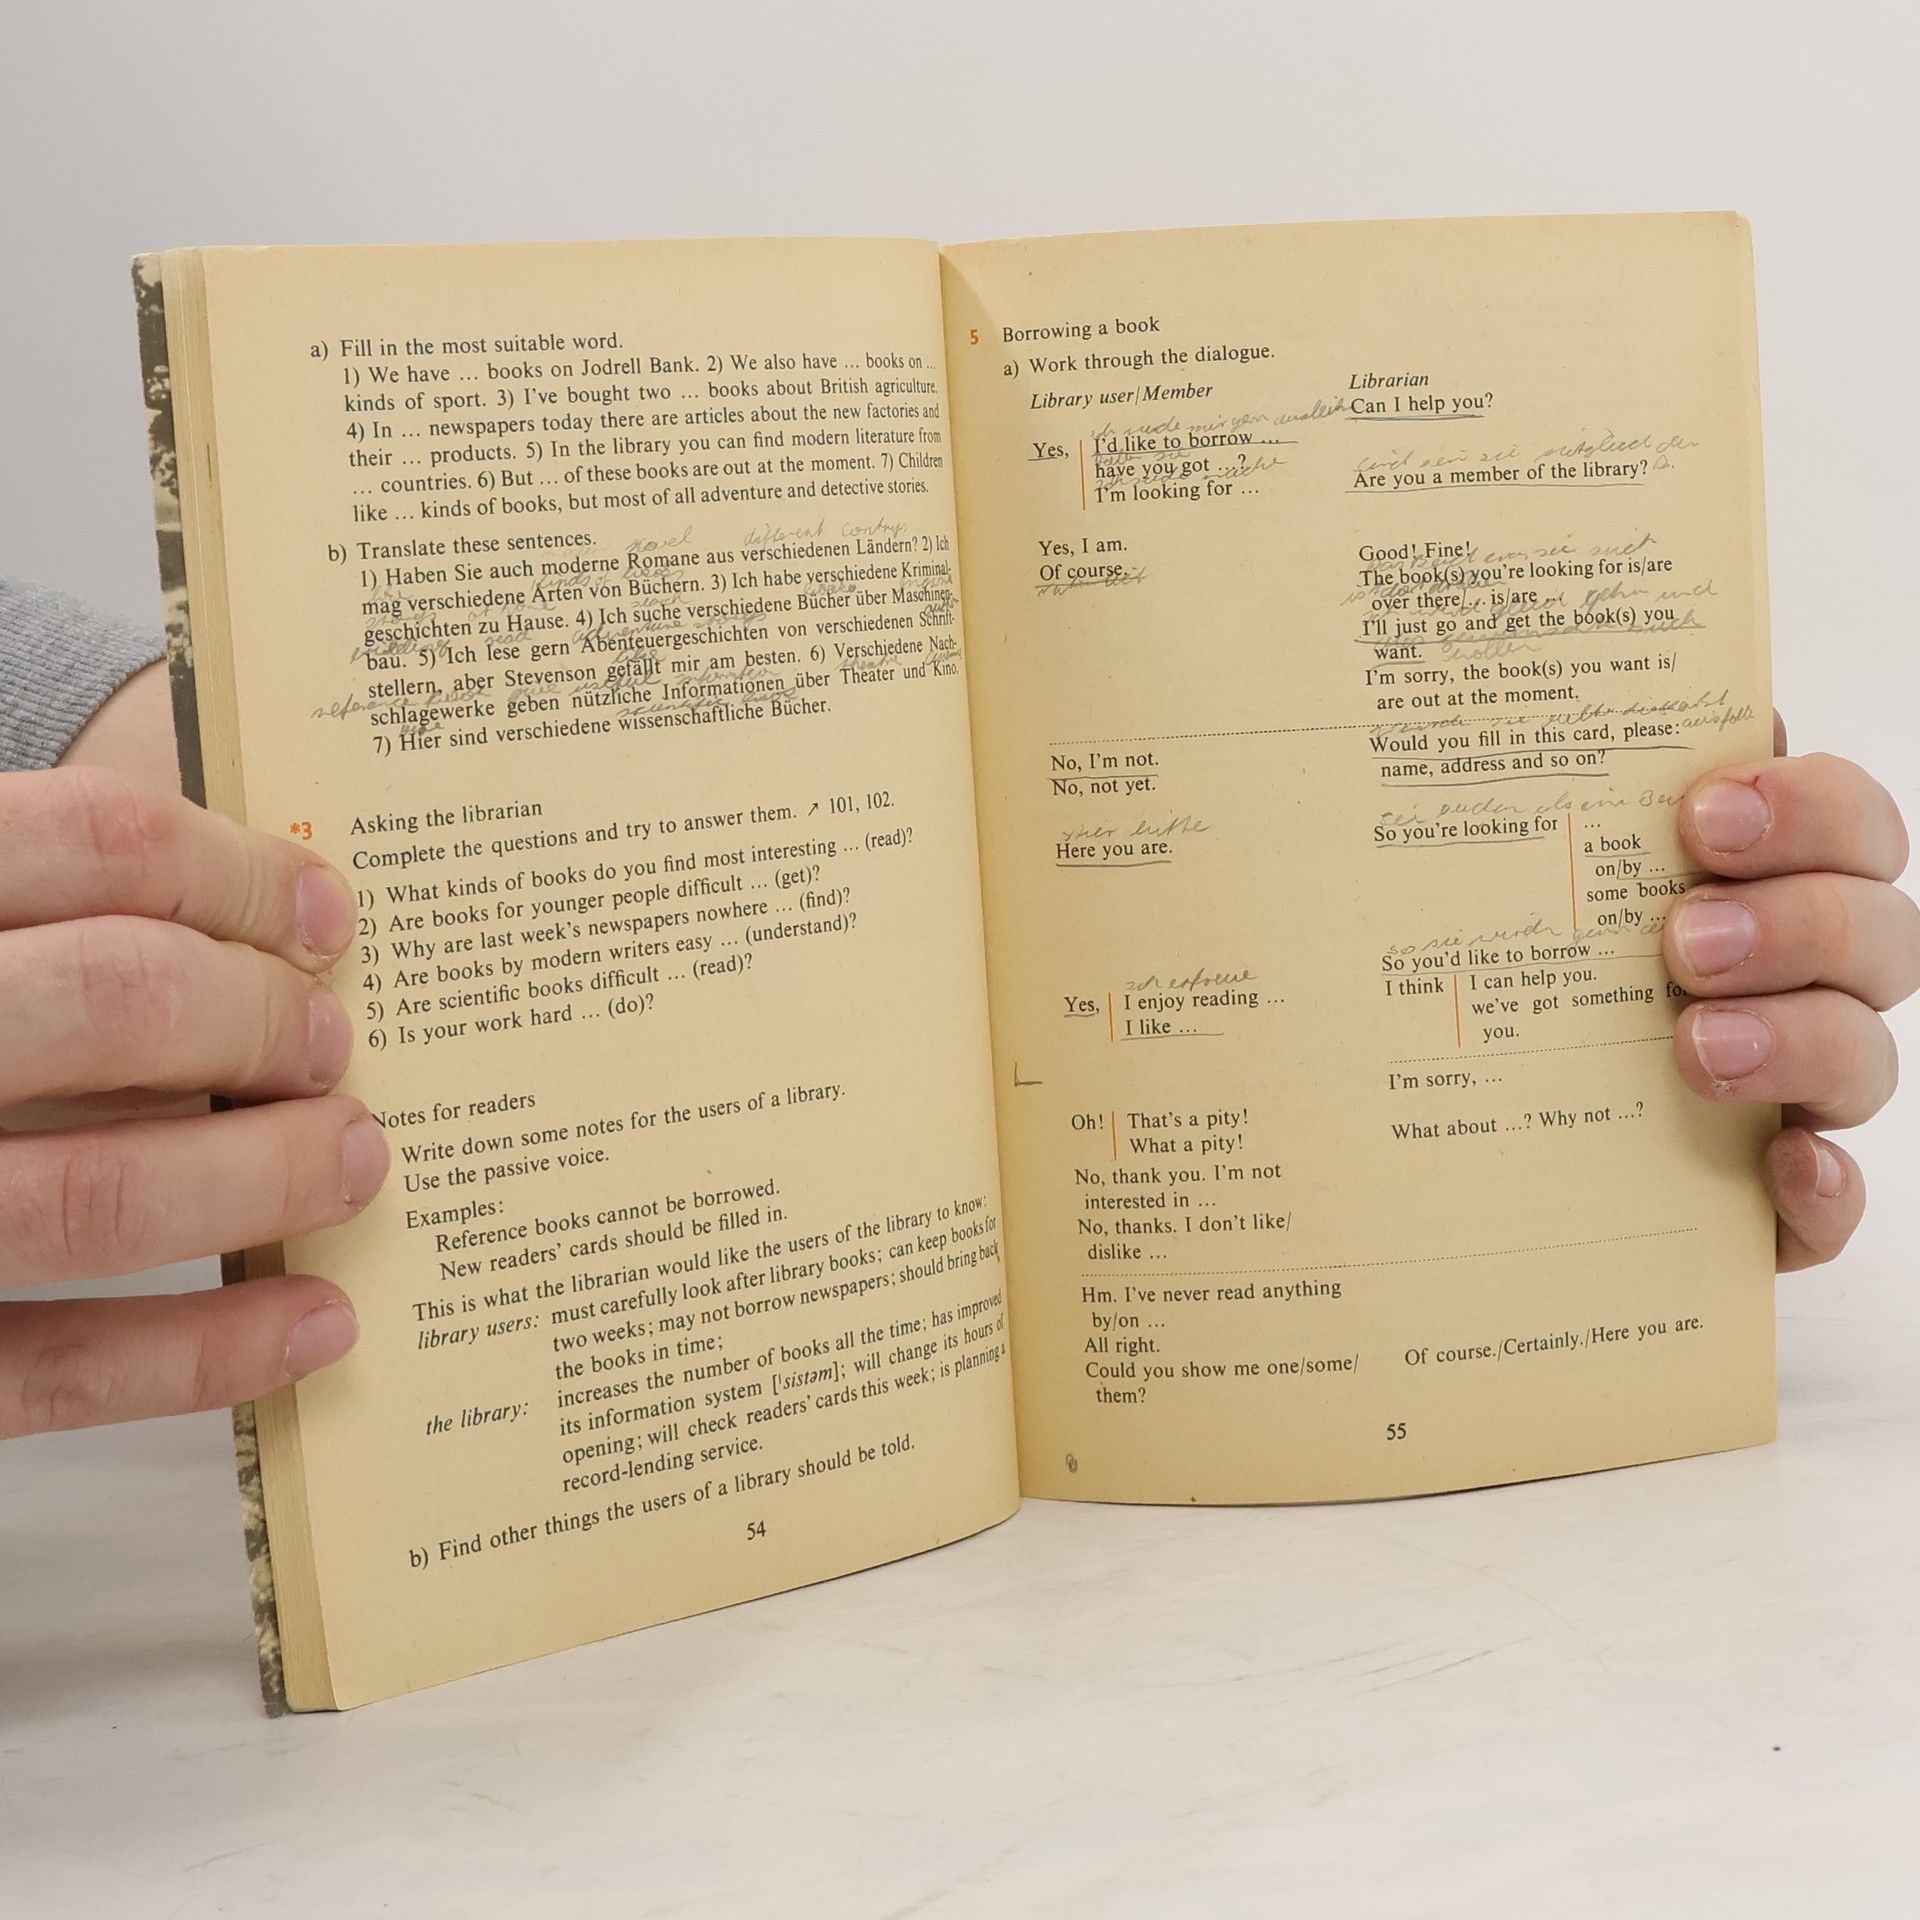 a) Fill in the most suitable word.
1) We have ... books on Jodrell Bank. 2) We also have ... books on ...
kinds of sport. 3) I've bought two ... books about British agriculture.
4) In ... newspapers today there are articles about the new factories and
their ... products. 5) In the library you can find modern literature from
... countries. 6) But ... of these books are out at the moment. 7) Children
like ... kinds of books, but most of all adventure and detective stories.
b) Translate these sentences.
novel different contrys
1) Haben Sie auch moderne Romane aus verschiedenen Ländern? 2) Ich
kinds of books
mag verschiedene Arten von Büchern. 3) Ich habe verschiedene Kriminal-
at home
geschichten zu Hause. 4) Ich suche verschiedene Bücher über Maschinen-
read adventure storys
bau. 5) Ich lese gern Abenteuergeschichten von verschiedenen Schrift-
like
stellern, aber Stevenson gefällt mir am besten. 6) Verschiedene Nach-
reference books give useful information theatre
schlagewerke geben nützliche Informationen über Theater und Kino.
scientific books
7) Hier sind verschiedene wissenschaftliche Bücher.
*3 Asking the librarian
Complete the questions and try to answer them. ↗ 101, 102.
1) What kinds of books do you find most interesting ... (read)?
2) Are books for younger people difficult ... (get)?
3) Why are last week's newspapers nowhere ... (find)?
4) Are books by modern writers easy ... (understand)?
5) Are scientific books difficult ... (read)?
6) Is your work hard ... (do)?
Notes for readers
Write down some notes for the users of a library.
Use the passive voice.
Examples:
Reference books cannot be borrowed.
New readers' cards should be filled in.
This is what the librarian would like the users of the library to know:
library users: must carefully look after library books; can keep books for
two weeks; may not borrow newspapers; should bring back
the books in time;
the library: increases the number of books all the time; has improved
its information system ['sistəm]; will change its hours of
opening; will check readers' cards this week; is planning a
record-lending service.
b) Find other things the users of a library should be told.
54
5 Borrowing a book
a) Work through the dialogue.
Library user/Member
Librarian
Can I help you?
Yes, I'd like to borrow ...
have you got ...?
I'm looking for ...
Are you a member of the library?
Yes, I am.
Of course.
Good! Fine!
The book(s) you're looking for is/are
over there/... is/are ...
I'll just go and get the book(s) you
want. wollen
I'm sorry, the book(s) you want is/
are out at the moment.
Would you fill in this card, please:
name, address and so on?
No, I'm not.
No, not yet.
hier bitte
Here you are.
So you're looking for ...
a book
on/by ...
some books
on/by ...
So you'd like to borrow ...
I think I can help you.
we've got something for
you.
Yes, I enjoy reading ...
I like ...
I'm sorry, ...
What about ...? Why not ...?
Oh! That's a pity!
What a pity!
No, thank you. I'm not
interested in ...
No, thanks. I don't like/
dislike ...
Hm. I've never read anything
by/on ...
All right.
Could you show me one/some/
them?
Of course./Certainly./Here you are.
55